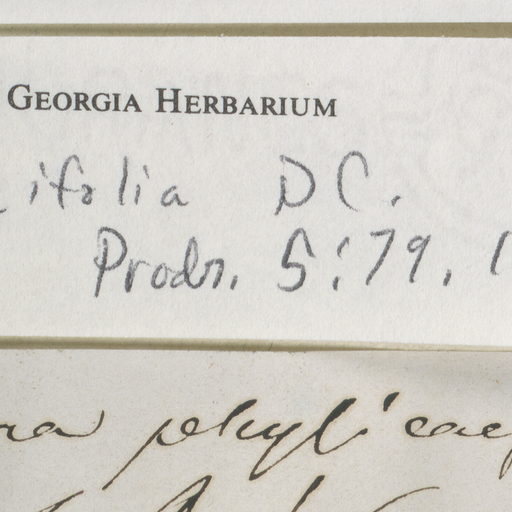 GEORGIA HERBARIUM
ifolia DC.
Prodr. 5:79, 1
ra phylicaef